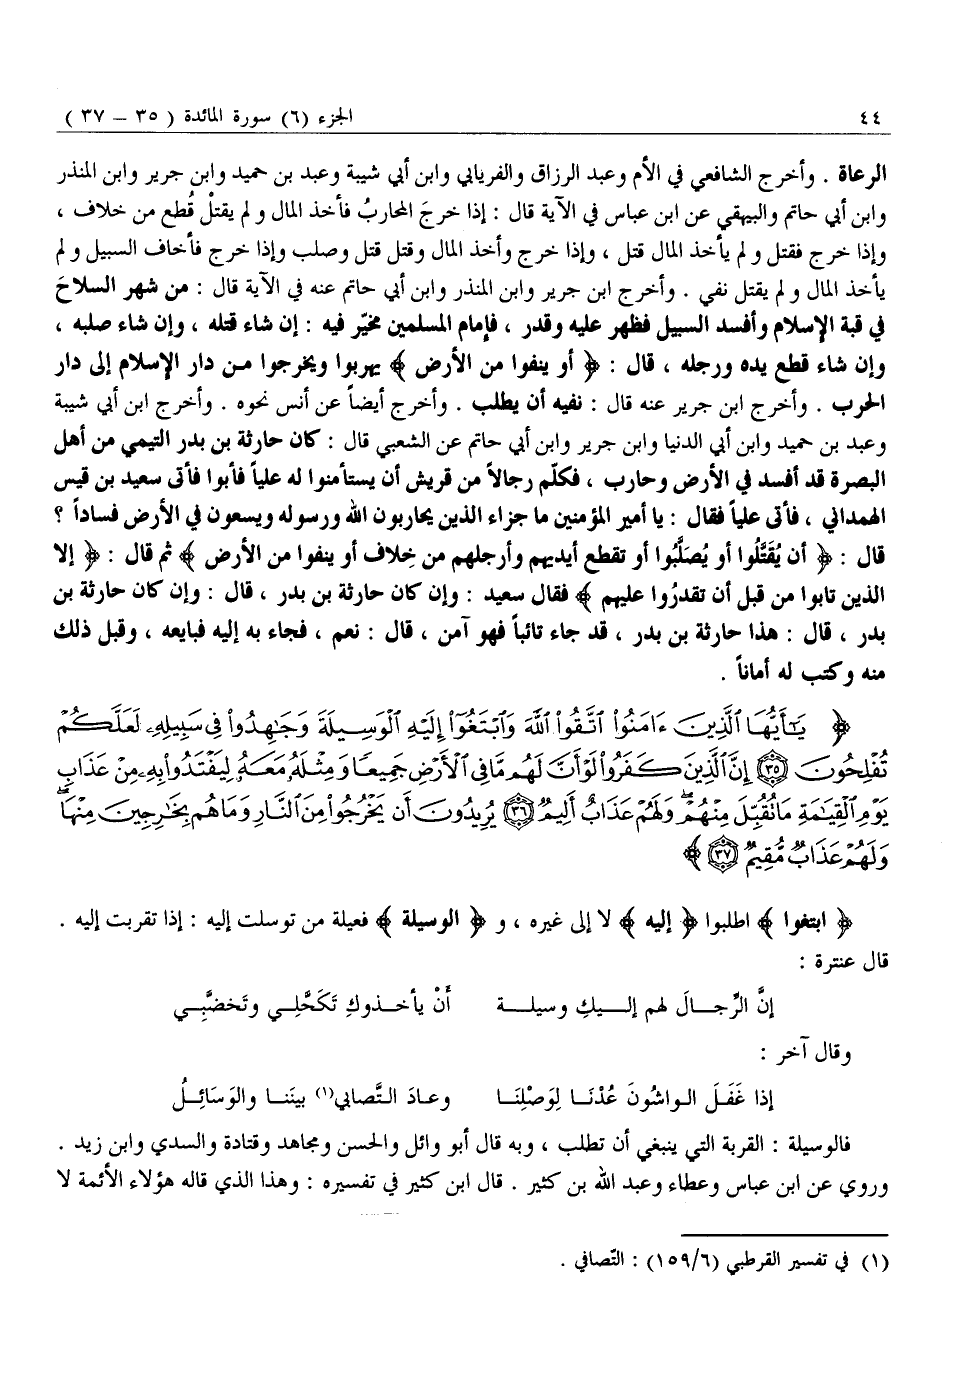 ٤٤ الجزء (٦) سورة المائدة ( ٣٥ – ٣٧ )
الرعاة . وأخرج الشافعي في الأم وعبد الرزاق والفريابي وابن أبي شيبة وعبد بن حميد وابن جرير وابن المنذر
وابن أبي حاتم والبيهقي عن ابن عباس في الآية قال : إذا خرجَ المحاربُ فأخذ المال و لم يقتلْ قُطع من خلاف ،
وإذا خرج فقتل و لم يأخذ المال قتل ، وإذا خرج وأخذ المال وقتل قتل وصلب وإذا خرج فأخاف السبيل و لم
يأخذ المال و لم يقتل نفي . وأخرج ابن جرير وابن المنذر وابن أبي حاتم عنه في الآية قال : من شهر السلاحَ
في قبة الإسلام وأفسد السبيل فظهر عليه وقدر ، فإمام المسلمين مخيّر فيه : إن شاء قتله ، وإن شاء صلبه ،
وإن شاء قطع يده ورجله ، قال : ﴿ أو ينفوا من الأرض ﴾ يهربوا ويخرجوا مـن دار الإسلام إلى دار
الحرب . وأخرج ابن جرير عنه قال : نفيه أن يطلب . وأخرج أيضاً عن أنس نحوه . وأخرج ابن أبي شيبة
وعبد بن حميد وابن أبي الدنيا وابن جرير وابن أبي حاتم عن الشعبي قال : كان حارثة بن بدر التيمي من أهل
البصرة قد أفسد في الأرض وحارب ، فكلّم رجالاً من قريش أن يستأمنوا له علياً فأبوا فأتى سعيد بن قيس
الهمداني ، فأتى علياً فقال : يا أمير المؤمنين ما جزاء الذين يحاربون الله ورسوله ويسعون في الأرض فساداً ؟
قال : ﴿ أن يُقَتَّلُوا أو يُصَلَّبُوا أو تقطع أيديهم وأرجلهم من خِلاف أو ينفوا من الأرض ﴾ ثم قال : ﴿ إلا
الذين تابوا من قبل أن تقدرُوا عليهم ﴾ فقال سعيد : وإن كان حارثة بن بدر ، قال : وإن كان حارثة بن
بدر ، قال : هذا حارثة بن بدر ، قد جاء تائباً فهو آمن ، قال : نعم ، فجاء به إليه فبايعه ، وقبل ذلك
منه وكتب له أماناً .
﴿ يَٰٓأَيُّهَا ٱلَّذِينَ ءَامَنُوا۟ ٱتَّقُوا۟ ٱللَّهَ وَٱبْتَغُوٓا۟ إِلَيْهِ ٱلْوَسِيلَةَ وَجَٰهِدُوا۟ فِى سَبِيلِهِۦ لَعَلَّكُمْ
تُفْلِحُونَ ٣٥ إِنَّ ٱلَّذِينَ كَفَرُوا۟ لَوْ أَنَّ لَهُم مَّا فِى ٱلْأَرْضِ جَمِيعًا وَمِثْلَهُۥ مَعَهُۥ لِيَفْتَدُوا۟ بِهِۦ مِنْ عَذَابِ
يَوْمِ ٱلْقِيَٰمَةِ مَا تُقُبِّلَ مِنْهُمْ ۖ وَلَهُمْ عَذَابٌ أَلِيمٌ ٣٦ يُرِيدُونَ أَن يَخْرُجُوا۟ مِنَ ٱلنَّارِ وَمَا هُم بِخَٰرِجِينَ مِنْهَا ۖ
وَلَهُمْ عَذَابٌ مُّقِيمٌ ٣٧ ﴾
﴿ ابتغوا ﴾ اطلبوا ﴿ إليه ﴾ لا إلى غيره ، و ﴿ الوسيلة ﴾ فعيلة من توسلت إليه : إذا تقربت إليه .
قال عنترة :
إنَّ الرِّجـالَ لهم إلـيكِ وسيلـة أَنْ يأخـذوكِ تَكَحَّلِـي وتَخضَّبِـي
وقال آخر :
إذا غَفَلَ الـواشُونَ عُدْنَـا لِوَصْلِنَـا وعـادَ التَّصابي(١) بيننـا والوَسَائِـلُ
فالوسيلة : القربة التي ينبغي أن تطلب ، وبه قال أبو وائل والحسن ومجاهد وقتادة والسدي وابن زيد .
وروي عن ابن عباس وعطاء وعبد الله بن كثير . قال ابن كثير في تفسيره : وهذا الذي قاله هؤلاء الأئمة لا
(١) في تفسير القرطبي (١٥٩/٦) : التّصافي .